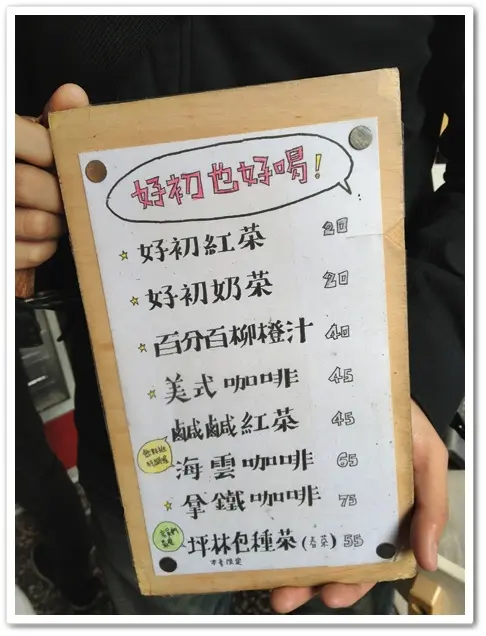 好初也好喝!
好初紅茶 20
好初奶茶 20
百分百柳橙汁 40
美式咖啡 45
鹹鹹紅茶 45
海雲咖啡 65
拿鐵咖啡 75
坪林包種茶(春茶) 55